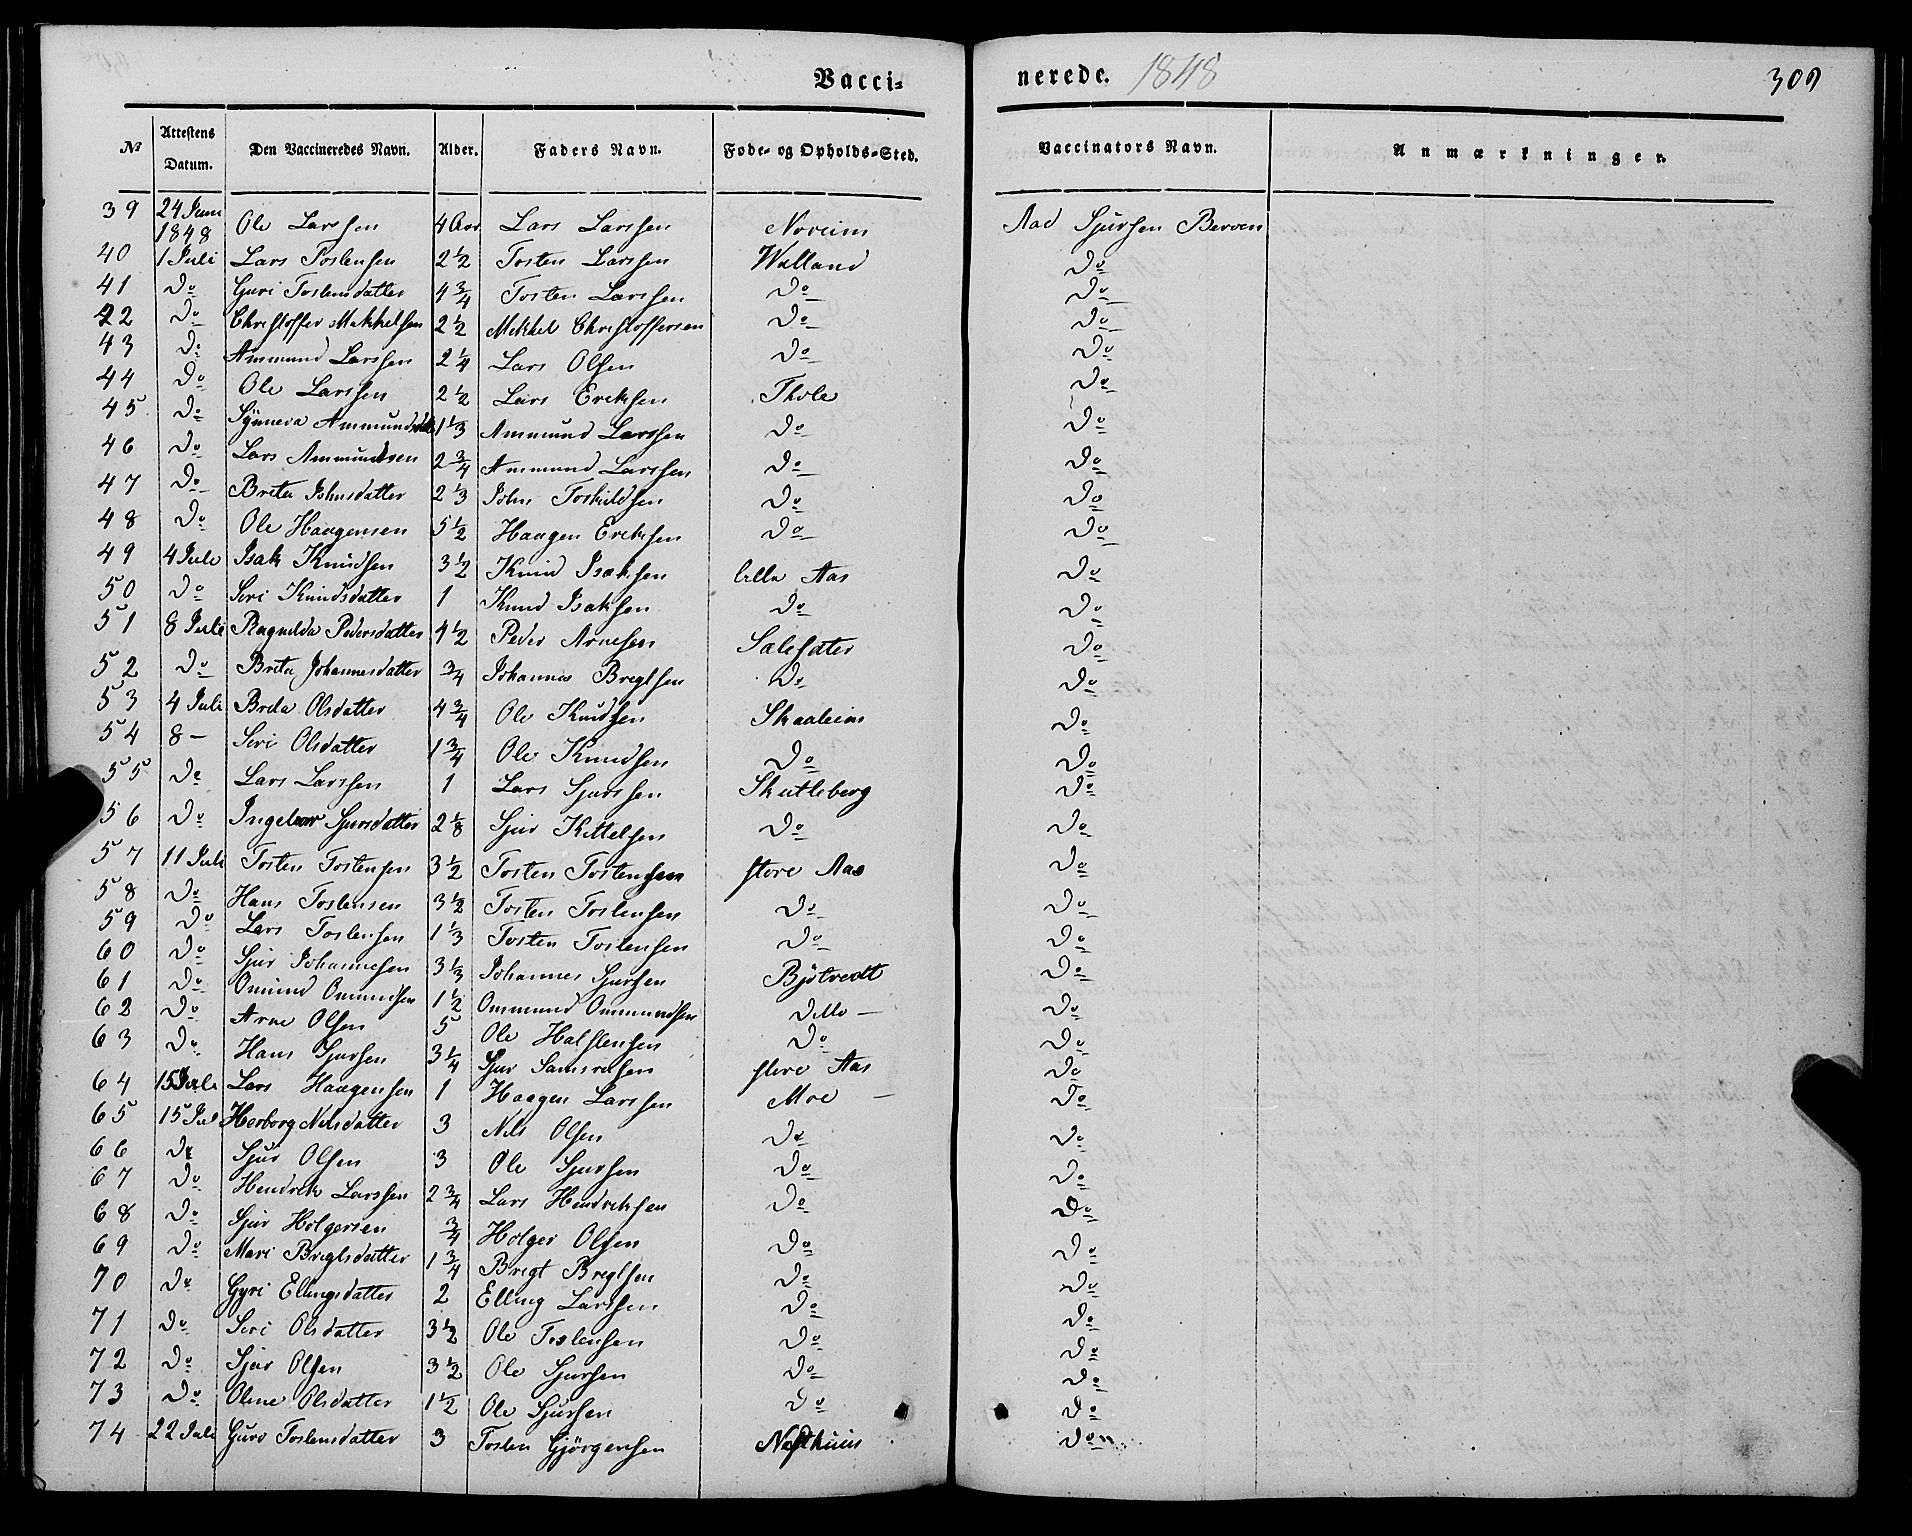 Vacci- nerede. 1848 309
No | Attestens Datum. | Den Vaccineredes Navn. | Alder. | Faders Navn. | Føde- og Opholds-Sted. | Vaccinators Navn. | Anmærkninger.
39 | 24 Juni 1848 | Ole Larssen | 4 Aar | Lars Larssen | Noreim | Aad Sjursen Berven
40 | 1 Juli | Lars Tostensen | 2 1/2 | Tosten Larssen | Walland | Do
41 | Do | Guri Tostensdatter | 4 3/4 | Tosten Larssen | Do | Do
42 | Do | Christoffer Mikkelsen | 2 1/2 | Mikkel Christoffersen | Do | Do
43 | Do | Ammund Larssen | 2 1/4 | Lars Olsen | Do | Do
44 | Do | Ole Larssen | 2 1/2 | Lars Eriksen | Thole | Do
45 | Do | Synneva Ammundsdtr | 1 1/3 | Ammund Larssen | Do | Do
46 | Do | Lars Ammundsen | 2 3/4 | Ammund Larssen | Do | Do
47 | Do | Brita Johnsdatter | 2 1/3 | John Torkildsen | Do | Do
48 | Do | Ole Haagensen | 5 1/2 | Haagen Ericksen | Do | Do
49 | 4 Juli | Isak Knudsen | 3 1/2 | Knud Isaksen | Lille Aas | Do
50 | Do | Siri Knudsdatter | 1 | Knud Isaksen | Do | Do
51 | 8 Juli | Ragnilda Pedersdatter | 4 1/2 | Peder Arnesen | Salesæter | Do
52 | Do | Brita Johannesdatter | 3/4 | Johannes Bregtsen | Do | Do
53 | 4 Juli | Brita Olsdatter | 4 3/4 | Ole Knudsen | Skaaleim | Do
54 | 8 — | Siri Olsdatter | 1 3/4 | Ole Knudsen | Do | Do
55 | Do | Lars Larssen | 1 | Lars Sjurssen | Skutleberg | Do
56 | Do | Ingeborr Sjursdatter | 2 1/8 | Sjur Kittelsen | Do | Do
57 | 11 Juli | Tosten Tostensen | 3 1/2 | Tosten Tostensen | store Aas | Do
58 | Do | Hans Tostensen | 3 1/2 | Tosten Tostensen | Do | Do
59 | Do | Lars Tostensen | 1 1/3 | Tosten Tostensen | Do | Do
60 | Do | Sjur Johannesen | 3 1/3 | Johannes Sjursen | Bjotvedt | Do
61 | Do | Omund Omundsen | 1 1/2 | Ommund Ommundsen | Ditto — | Do
62 | Do | Arne Olsen | 5 | Ole Halstensen | Do | Do
63 | Do | Hans Sjursen | 3 1/4 | Sjur Samsonsen | store Aas | Do
64 | 15 Juli | Lars Haagensen | 1 | Haagen Larssen | Moe — | Do
65 | 15 Jul | Herborg Nilsdatter | 3 | Nils Olsen | Do | Do
66 | Do | Sjur Olsen | 3 | Ole Sjursen | Do | Do
67 | Do | Hendrik Larssen | 2 3/4 | Lars Hendriksen | Do | Do
68 | Do | Sjur Holgersen | 3/4 | Holger Olsen | Do | Do
69 | Do | Mari Bregtsdatter | 1 3/4 | Bregt Bregtsen | Do | Do
70 | Do | Gyri Ellingsdatter | 2 | Elling Larssen | Do | Do
71 | Do | Siri Olsdatter | 3 1/2 | Ole Tostensen | Do | Do
72 | Do | Sjur Olsen | 3 1/2 | Ole Sjursen | Do | Do
73 | Do | Oline Olsdatter | 1 1/2 | Ole Sjursen | Do | Do
74 | 22 Juli | Guro Tostensdatter | 3 | Tosten Gjørgensen | Nesthuus | Do